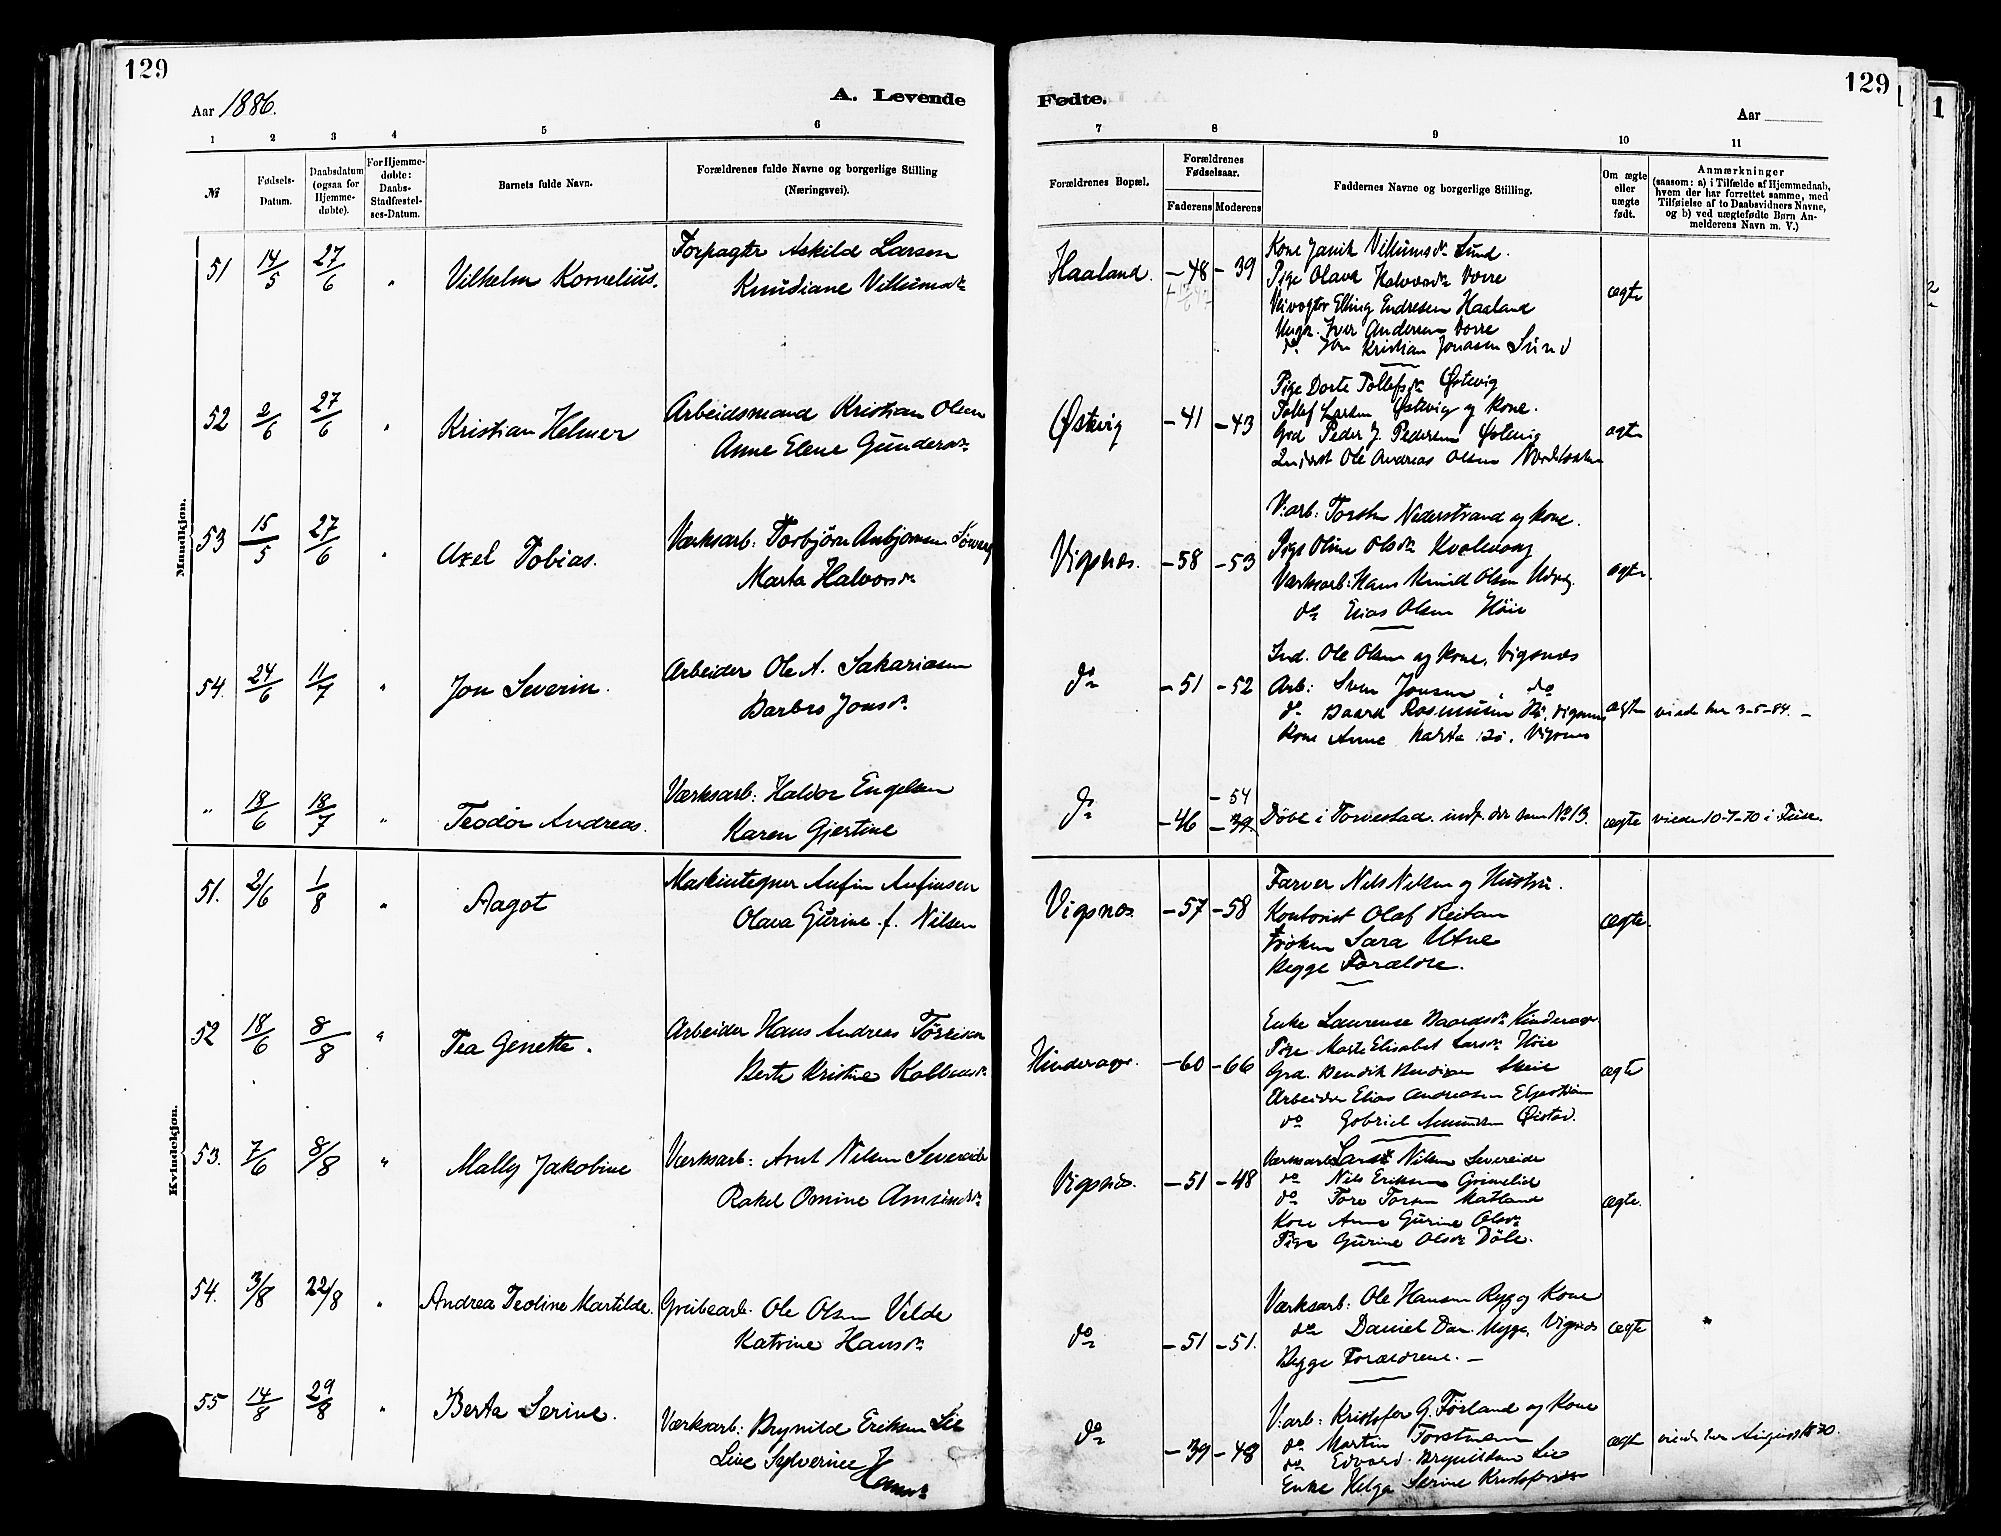 129
129
Aar 1886.
A. Levende
Fødte.
Aar
1 2 3 4 5 6
7 8 9 10 11
№
Fødsels-
Datum.
Daabsdatum
(ogsaa for
Hjemme-
døbte).
For Hjemme-
døbte:
Daabs-
Stadfæstel-
ses-Datum.
Barnets fulde Navn.
Forældrenes fulde Navne og borgerlige Stilling
(Næringsvei).
Forældrenes Bopæl.
Forældrenes
Fødselsaar.
Faderens Moderens
Faddernes Navne og borgerlige Stilling.
Om ægte
eller
uægte
født.
Anmærkninger
(saasom: a) i Tilfælde af Hjemmedaab,
hvem der har forrettet samme, med
Tilføielse af to Daabsvidners Navne,
og b) ved uægtefødte Børn An-
melderens Navn m. V.)
Mandkjøn.
51 14/5 27/6 " Vilhelm Kornelius.
Forpagter Askild Larsen
Knudiane Villumsdr
Haaland. – 48 – 39
Kone Janik Villumsdr Sund.
Pige Olava Halvorsdr Vorre
Veivogter Elling Endresen Haaland
Ungk. Iver Andersen Vorre
do Kristian Jonasen Sund
ægte
52 2/6 27/6 " Kristian Helmer
Arbeidsmand Kristian Olsen
Anne Elene Gundersdr
Østevig – 41 – 43
Pige Dorte Tollefsdr Østevig
Tollef Larsen Østevig og Kone.
Grd Peder J. Pedersen Østevig
Inderst Ole Andreas Olsen
ægte
53 15/5 27/6 " Axel Tobias.
Værksarb: Torbjørn
Marta Halvorsdr
Vigsnæs. – 58 – 53
V.arb: Torsten Nederstrand og Kone.
Pige Oline Olsdr Kvalevaag
Værksarb: Hans Knud Olsen
do Elias Olsen Høie
ægte
54. 24/6 11/7 " Jon Severin.
Arbeider Ole A. Sakariasen
Barbro Jonsdr
do – 51 – 52
Ind. Ole Olsen og Kone, Vigsnæs
Arb: Sven Jonsen, do
do Baard Rasmusen Vigsnæs
Kone Anne Vigsnes
ægte viede her 3-5-84. –
" 18/6 18/7 " Teodor Andreas.
Værksarb: Haldor Engelsen
Karen Gjertine
do – 46 – 54
– 39.
Døbt i Torvestad. indf. der som No 13. ægte viede 10-7-70 i
Kvindekjøn.
51. 2/6 1/8 " Aagot
Maskintegner Anfin Anfinsen
Olava Gurine f. Nilsen
Vigsnæs. – 57 – 58
Farver Nils Nilsen og Hustru.
Kontorist Olaf Reitan
Frøken Sara Utne
Begge Forældre.
ægte.
52 18/6 8/8 " Tea Genette.
Arbeider Hans Andreas
Berte Kristine
Hinderager. – 60 – 66
Enke Laurense Baardsdr Hinderager
Pige Marte Elisabet Larsdr Høie
Grd. Bendik
Arbeider Elias Andreasen
do Gabriel
ægte
53. 7/6 8/8 " Mally Jakobine
Værksarb: Arnt Nilsen Severeide
Rakel Omine Amundsdr
Vigsnæs. – 51 – 48
Værksarb: Lars Nilsen Severeide
do Nils Eriksen Grimelid
do Tore Matland
Kone Anne Gurine Olsdr
Pige Gurine Olsdr Døle.
ægte.
54. 3/8 22/8 " Andrea Teoline Martilde.
Grubearb. Ole Olsen Velde
Katrine Hansdr
do – 51 – 51.
Værksarb: Ole Hansen Ryg og Kone
do Daniel Dan. Mygge, Vigsnes
Begge Forældrene. –
ægte "
55 14/8 29/8 " Berta Serine.
Værksarb: Brynild Eriksen Lie
Line Sylverine Hansdr
do – 39 – 48
V.arb: Kristofer G. Førland og Kone
do Martin Torstensen
do Edvard Brynildsen Lie
Enke Helga Serine Kristofersdr
ægte viede her August 1870.